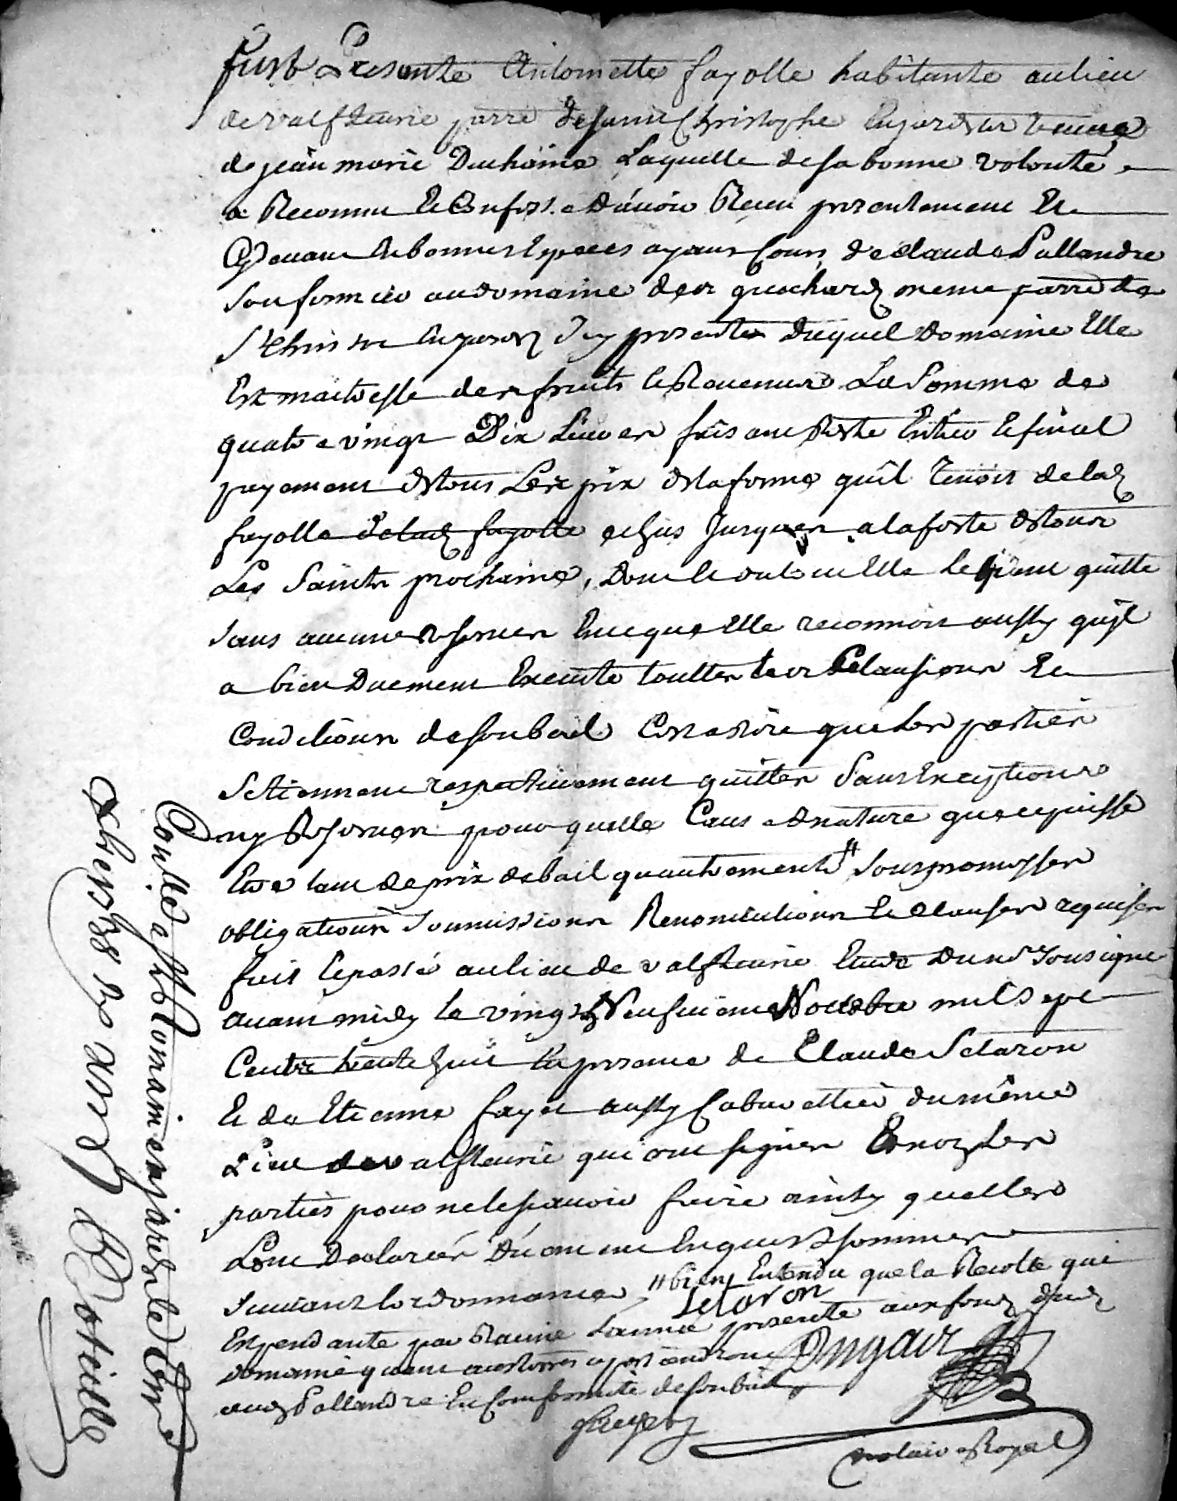 fust Presente Antoinette fayolle habitante au lieu
de valfleurie parre de saint Christophe veuve
de jean marie Duchaine Laquelle de sa bonne volonté
a Reconnu Et Confess.e d'avoir Receu presentement Et
Cydevant En bonnes Especes ayant Cours de claude Pallandre
son fermier au domaine des meme parre de
presente duquel domaine Elle
Est maitresse des fruits & Revenus La Somme de
quatre vingt Dix Livres fais ant Reste Entier & final
payement de tous Les prix de la ferme quil Tenoit de lad
fayolle de lad fayolle echus jusques a la feste de tous
Les Saints prochaine, dont Elle le tient quitte
sans aucune reserve Enceque Elle reconnoit aussy quil
a bien Duement Execute touttes les Clausions Et
Conditions de son bail Cest a dire que les parties
se tiennent respectivement quittes Sans Exceptions
ny Reserves pour quelle Caus e & nature que ce puisse
Etre tant de prix de bail quautrement # sous promesses
obligations Soumissions Renonciations & clauses requises
fait & passé au lieu de valfleurie Etude Du nre sousigne
avant midy le vingt Neufvieme mil sept
Cents trente huit En presence de Claude Setaron
Et de Etienne fayet aussy Cabarettier du même
Lieu de valfleurie qui ont signes & non Les
parties pour ne le scavoir faire ainsy quelles
Lont Declarées Duement Enquis & sommes
suivant lordonnance # bien Entendu que la Recolte qui
Setaron
Est pendante par Racine Lannée presente aux fonds dud
domaine
aud Pallandre En Conformité de son bail
Dugair
fayet
notaire Royal
Controllé a St Romain en jarest le
Receu